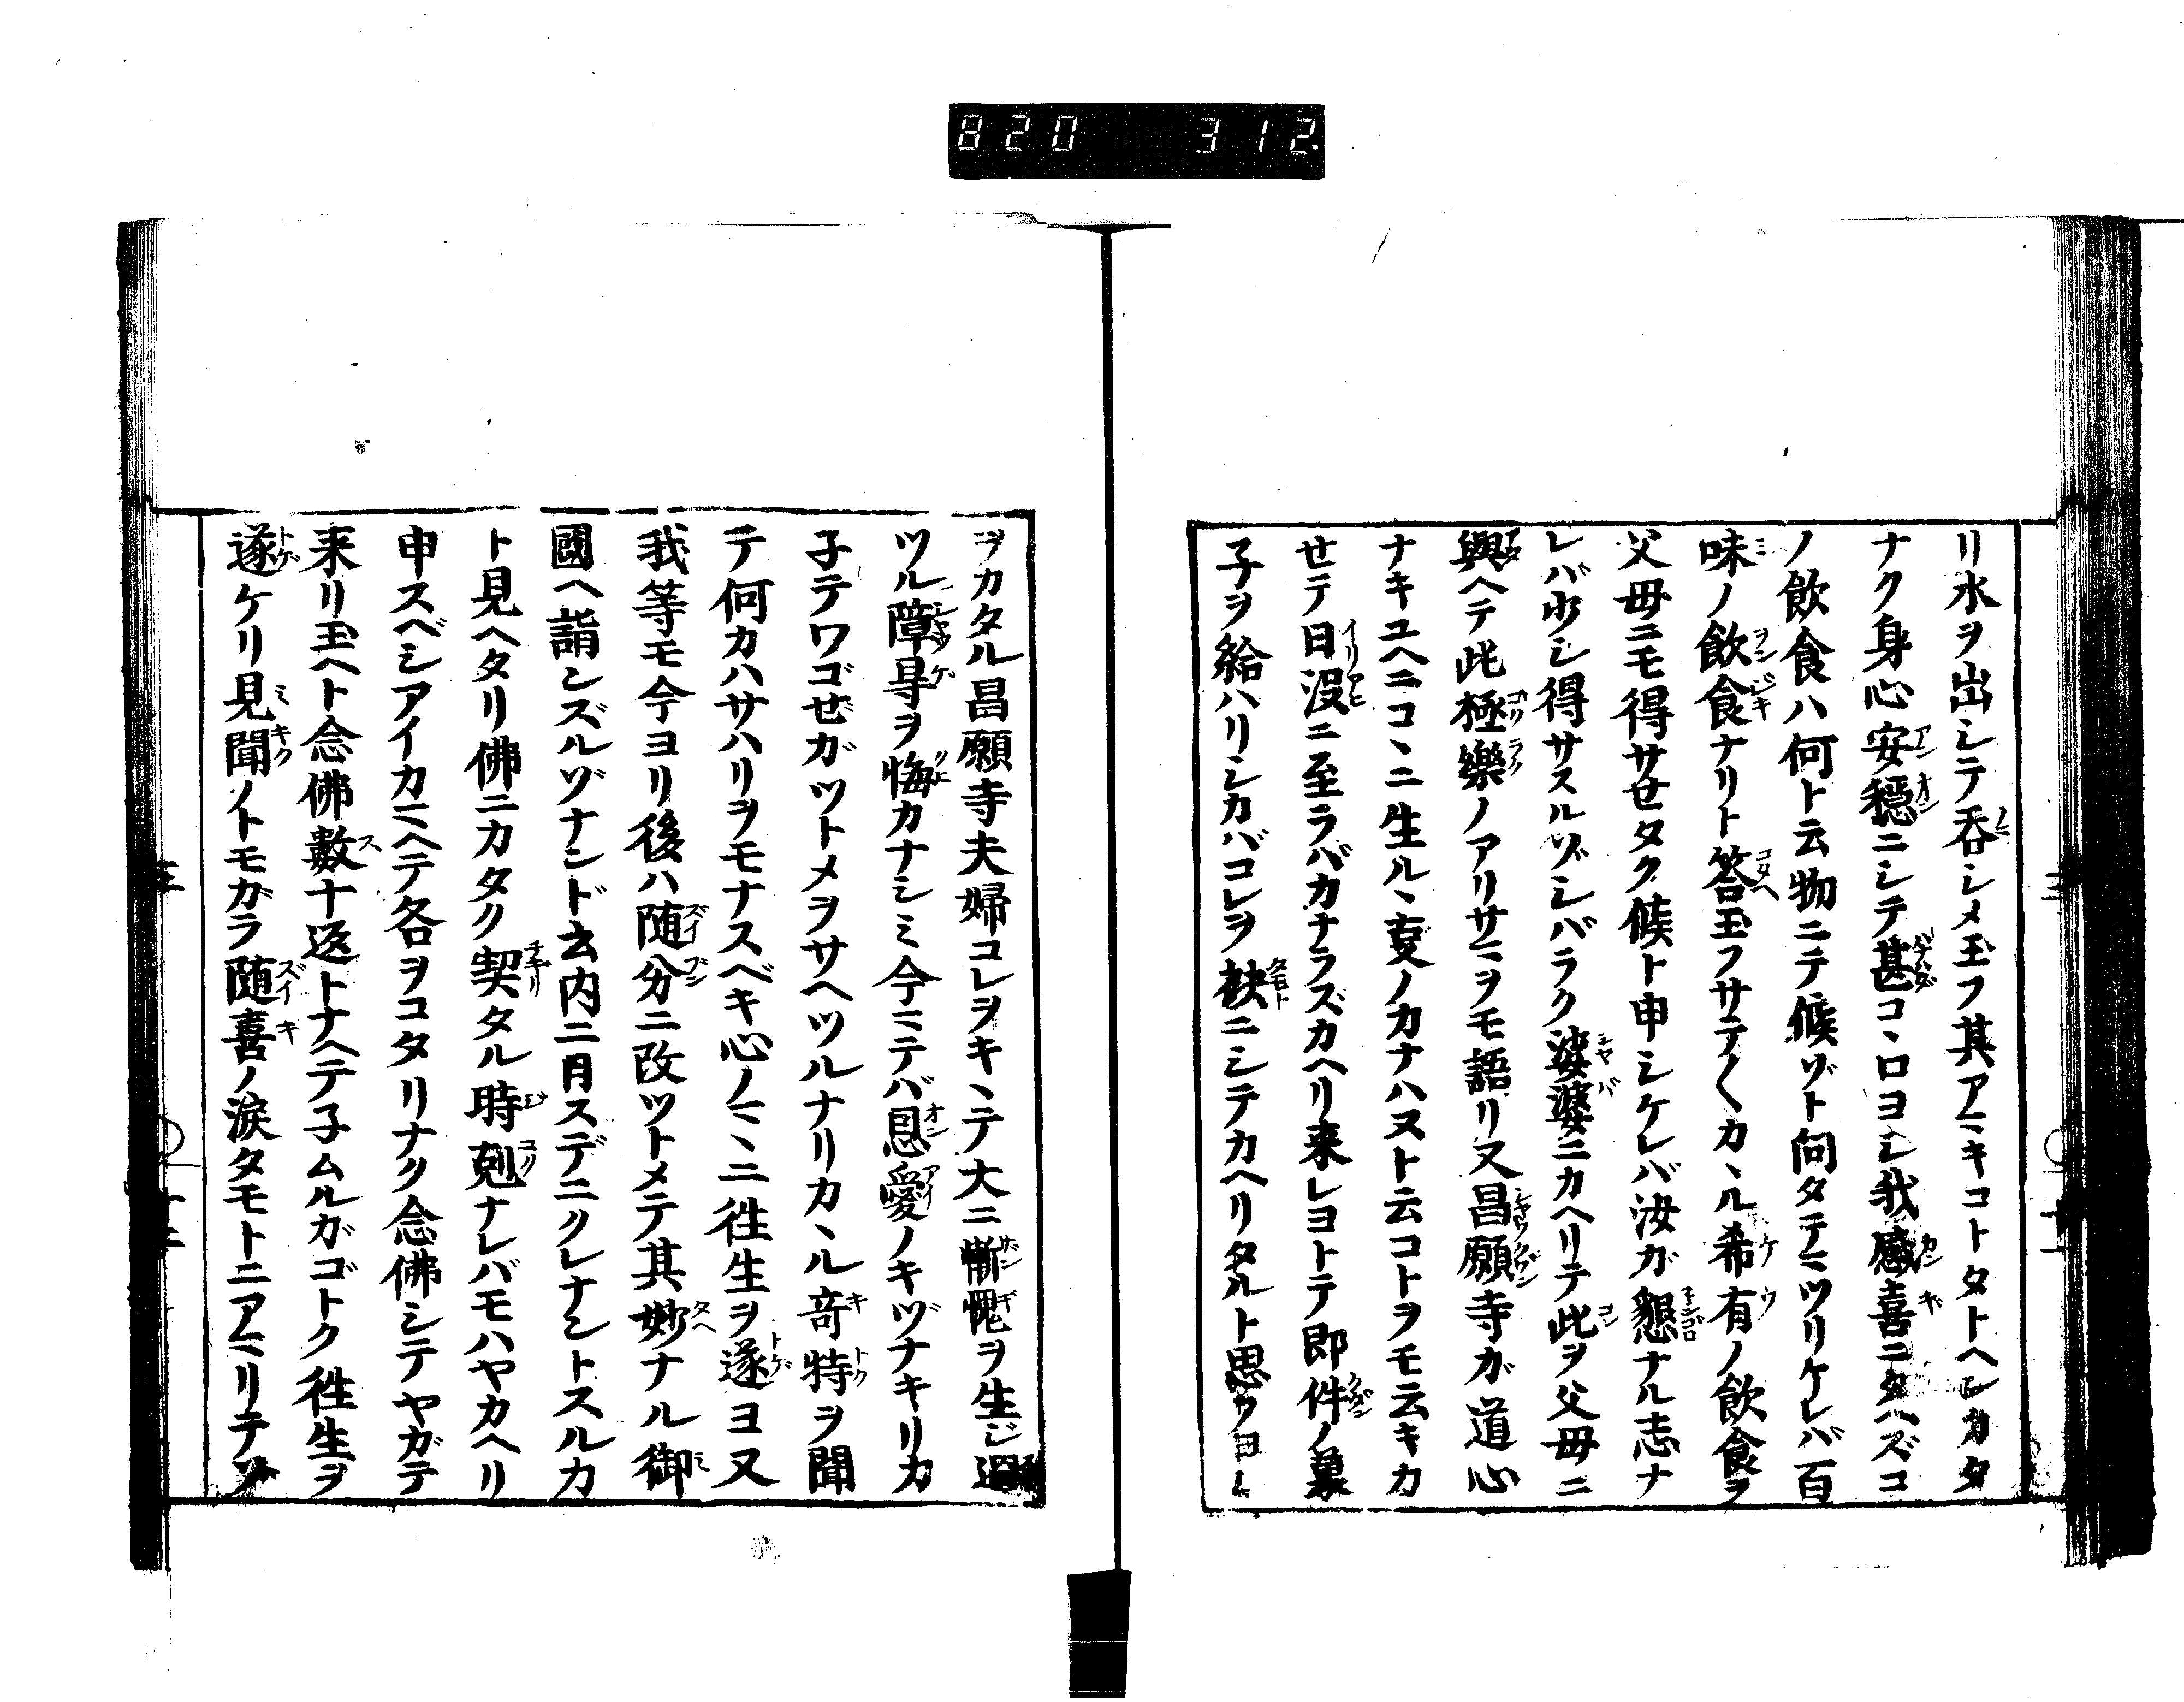 820 312
リ水ヲ出シテ呑シメ玉フ其アマキコトタトヘンカタ
ナク身心安穏ニシテ甚コヽロヨシ我感喜ニタヘズコ
ノ飲食ハ何ト云物ニテ候ゾト問タテマツリケレバ百
味ノ飲食ナリト答玉フサテ〱カヽル希有ノ飲食ヲ
父母ニモ得サせタク候ト申シケレバ汝ガ懇ナル志ナ
レバ少シ得サスルゾシバラク婆婆ニカヘリテ此ヲ父母ニ
與ヘテ此極樂ノアリサマヲモ語リ又昌願寺ガ道心
ナキユヘニコヽニ生ルヽ㕝ノカナハヌト云コトヲモ云キカ
せテ日没ニ至ラバカナラズカヘリ来レヨトテ即件ノ菓
子ヲ給ハリシカバコレヲ袂ニシテカヘリタルト思ウヨシ
ヲカタル昌願寺夫婦コレヲキヽテ大ニ慚愧ヲ生ジ
ツル障㝵ヲ悔カナシミ今マテバ恩愛ノキヅナキリカ
子テワゴせガツトメヲサヘツルナリカヽル竒特ヲ聞
テ何カハサハリヲモナスベキ心ノマヽニ徃生ヲ遂ヨ又
我等モ今ヨリ後ハ随分ニ改ツトメテ其妙ナル御
國ヘ詣シズルゾナンド云内ニ月スデニクレナントスルカ
ト見ヘタリ佛ニカタク契タル時剋ナレバモハヤカヘリ
申スベシアイカマヘテ各ヲコタリナク念佛シテヤガテ
来リ玉ヘト念佛數十返トナヘテ子ムルガゴトク徃生ヲ
遂ケリ見聞ノトモガラ随喜ノ涙タモトニアマリテ